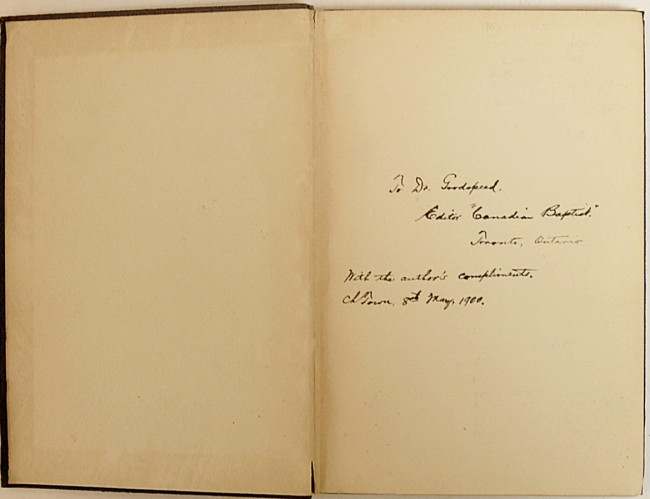 To Dr. Goodspeed.
Editor "Canadian Baptist."
Toronto, Ontario
With the author's compliments.
Ch Town, 8th May, 1900.